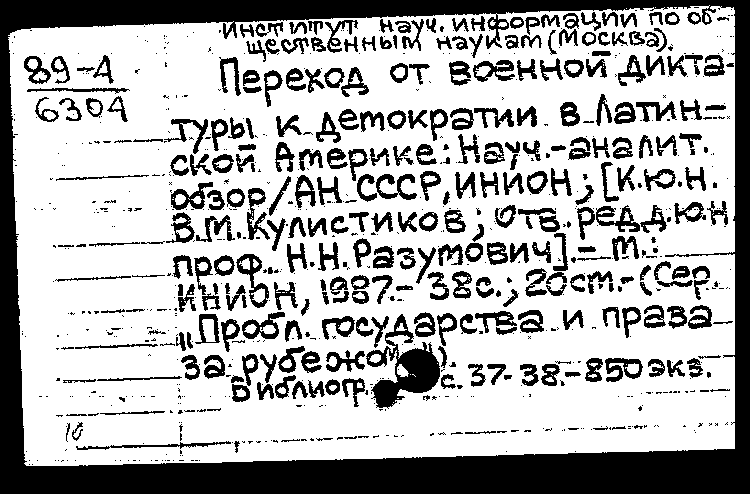 Институт науч. информации по об-
щественным наукам (Москва).
89-4
6304
Переход от военной дикта-
туры к демократии в Латин-
ской Америке: Науч.-аналит.
обзор/АН СССР, ИНИОН; [К.ю.н.
В.М.Кулистиков; Отв. ред. д.ю.н.
проф. Н.Н.Разумович].- М.:
ИНИОН, 1987.- 38с.; 20см.- (Сер.
"Пробл. государства и права
за рубежом").
Библиогр. с. 37-38.- 850 экз.
10